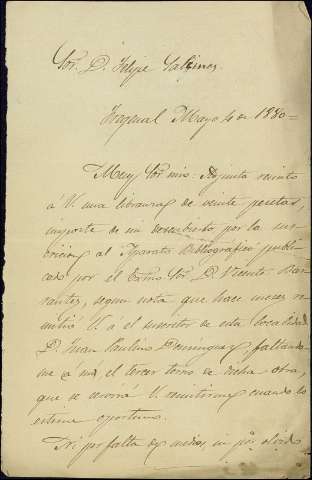 Sor. D. Felipe Salinez.
Fregenal Mayo 4 de 1880=
Muy Sor mio: Adjunta remito
á V. una libranza de veinte pesetas,
importe de mi descubierto por la sus-
cricion al Aparato Bibliografico publi-
cado por el Exmo Sor D. Vicente Bar-
rantes, segun nota que hace meses re-
mitió V. á el suscritor de esta localidad
D. Juan Paulino Dominguez, faltando-
me á mi el tercer tomo de dicha obra,
que se servirá V. remitirme cuando lo
estime oportuno.
Ni por falta de medios, ni por olvido